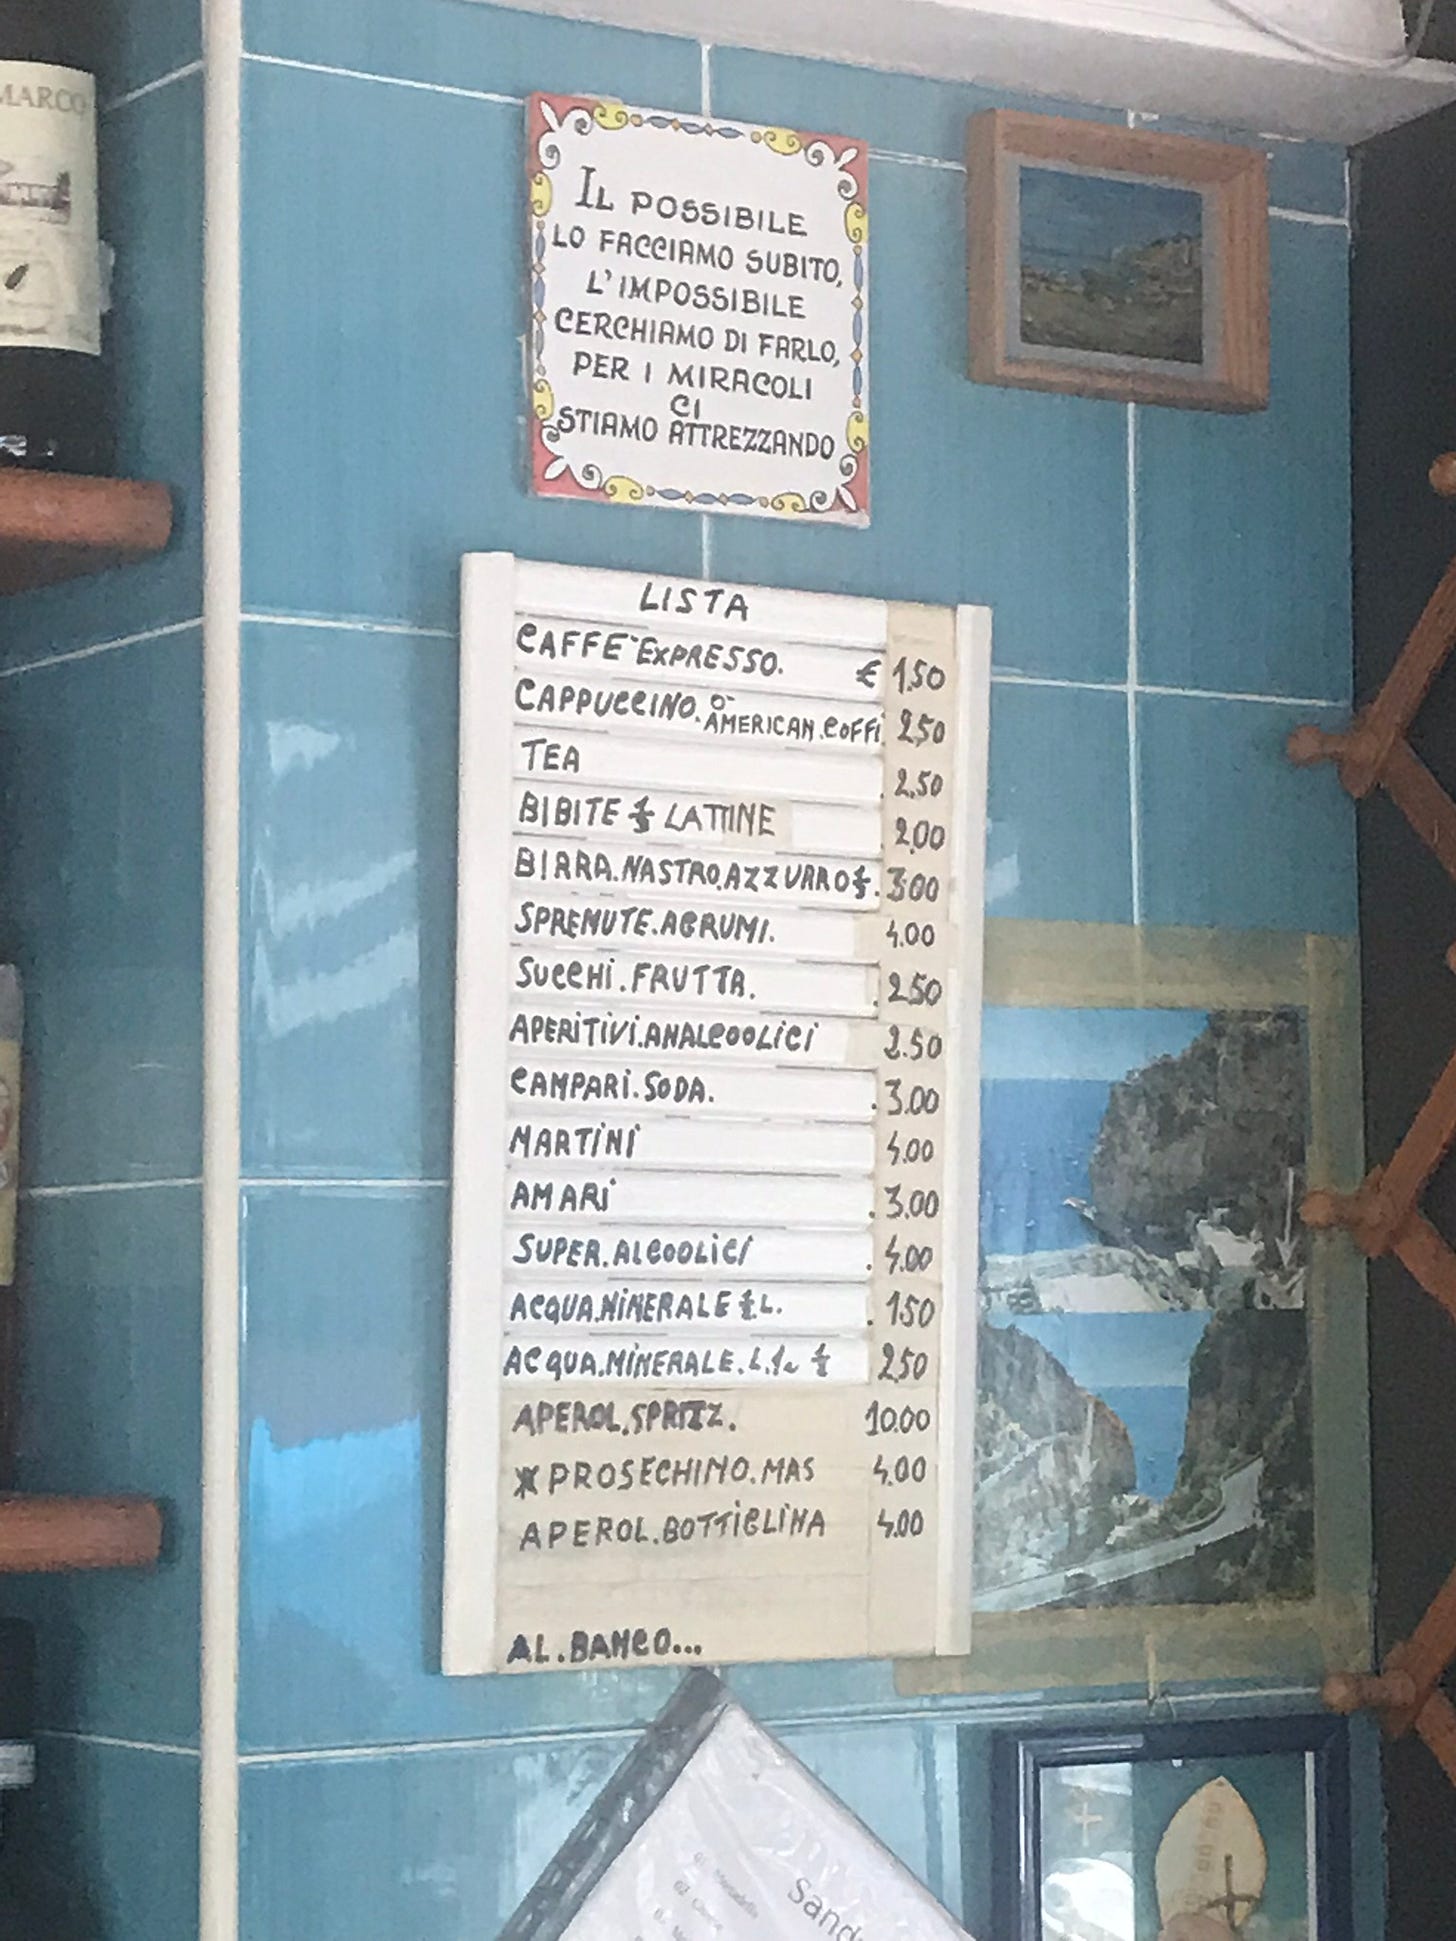 MARCO
IL POSSIBILE
LO FACCIAMO SUBITO,
L'IMPOSSIBILE
CERCHIAMO DI FARLO,
PER I MIRACOLI
CI
STIAMO ATTREZZANDO
LISTA
CAFFE' EXPRESSO. € 1.50
CAPPUCCINO. O AMERICAN.COFFI 2.50
TEA 2.50
BIBITE LATTINE 2.00
BIRRA.NASTRO.AZZURRO 3.00
SPREMUTE.AGRUMI. 4.00
SUCCHI.FRUTTA. 2.50
APERITIVI.ANALCOOLICI 2.50
CAMPARI.SODA. 3.00
MARTINI 4.00
AMARI 3.00
SUPER.ALCOOLICI 4.00
ACQUA.MINERALE ½ L. 1.50
ACQUA.MINERALE.L.1 ½ 2.50
APEROL.SPRITZ. 10.00
PROSECHINO.MAS 4.00
APEROL.BOTTIGLINA 4.00
AL.BANCO...